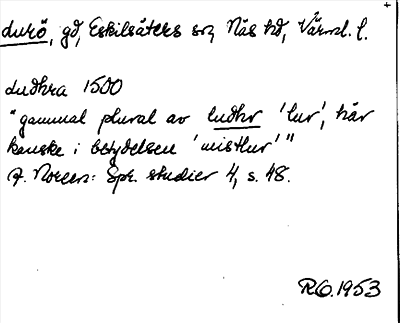 Lurö, gd, Eskilsäters sn, Näs hd, Värml. l.
Ludhra 1500
"gammal plural av ludhr 'lur', här
kanske i betydelsen 'mistlur'"
A. Noreen: Spr. studier 4, s. 48.
RO. 1953